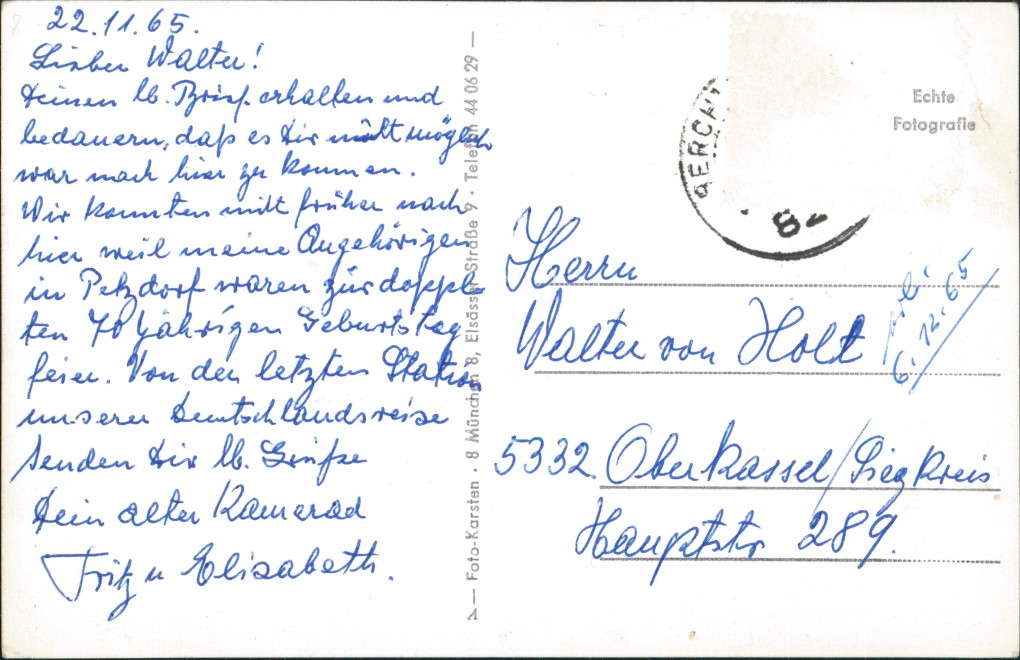 22.11.65.
Lieber Walter!
Deinen lb. Brief erhalten und
bedauern, daß es Dir nicht möglich
war nach hier zu kommen.
Wir konnten nicht früher nach
hier weil meine Angehörigen
in Petzdorf waren zur doppel-
ten 70 jährigen Geburtstag
feier. Von der letzten Station
unserer Deutschlandsreise
senden Dir lb. Grüße
Dein alter Kamerad
Fritz u Elisabeth.
— Foto-Karsten · 8 München 8, Elsässer Straße 9 · Telefon 44 06 29 —
BERCH
82
Echte
Fotografie
Herrn
Walter von Holt
6.12.65
5332. Oberkassel/Siegkreis
Hauptstr 289.